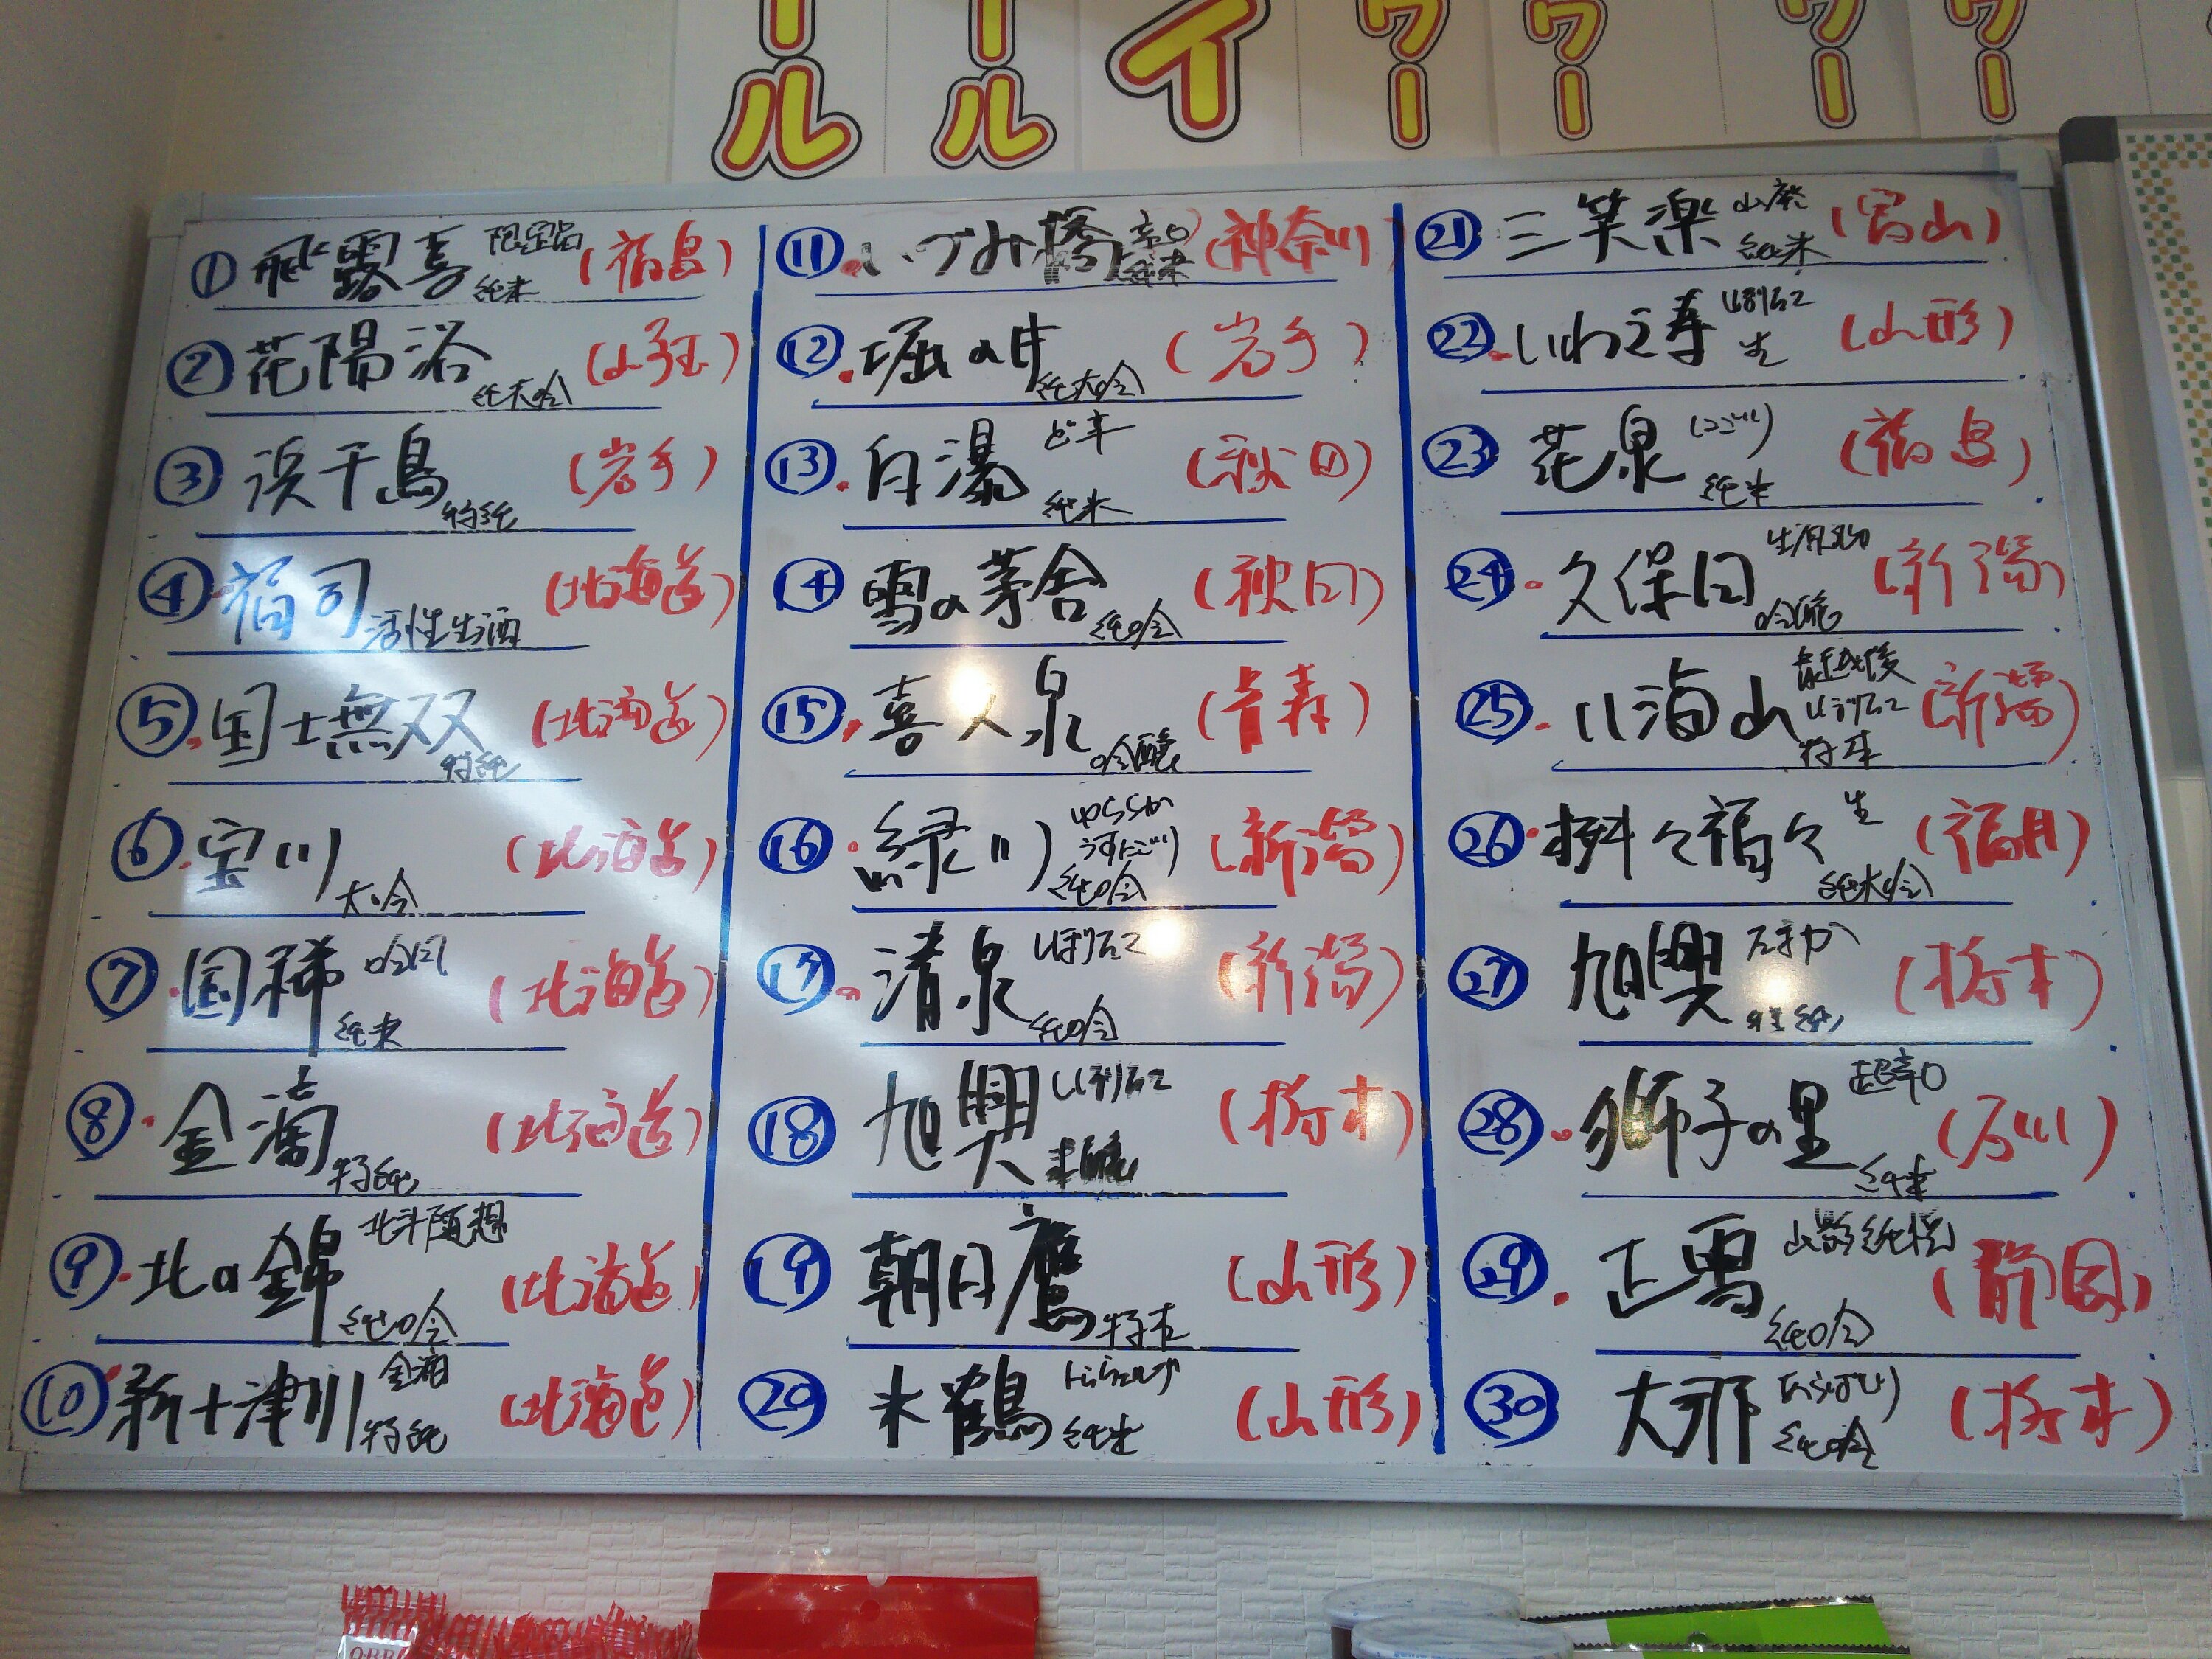 ール
ール
イ
ワー
ワー
ワー
ワー
① 飛露喜 限定品 純米 (福島)
② 花陽浴 純大吟 (山玉)
③ 浜千鳥 特純 (岩手)
④ 福司 活性生酒 (北海道)
⑤ 国士無双 特純 (北海道)
⑥ 宝川 大吟 (北海道)
⑦ 国稀 吟風 純米 (北海道)
⑧ 金滴 特純 (北海道)
⑨ 北の錦 北斗随想 純吟 (北海道)
⑩ 新十津川 金滴 特純 (北海道)
⑪ いづみ橋 辛口 純米 (神奈川)
⑫ 堀の井 純大吟 (岩手)
⑬ 白瀑 ど辛 純米 (秋田)
⑭ 雪の茅舎 純吟 (秋田)
⑮ 喜久泉 吟醸 (青森)
⑯ 緑川 うすにごり 純吟 (新潟)
⑰ 清泉 しぼりたて 純吟 (新潟)
⑱ 旭興 しぼりたて 本醸 (栃木)
⑲ 朝日鷹 特本 (山形)
⑳ 米鶴 純米 (山形)
㉑ 三笑楽 山廃 純米 (富山)
㉒ いわゑ寿 しぼりたて 生 (山形)
㉓ 花泉 にごり 純米 (福島)
㉔ 久保田 生原酒 吟醸 (新潟)
㉕ 八海山 越後 しぼりたて 特本 (新潟)
㉖ 桝々福々 生 純大吟 (福井)
㉗ 旭興 たまか (栃木)
㉘ 獅子の里 超辛口 純米 (石川)
㉙ 正雪 山影純悦 純吟 (静岡)
㉚ 大那 あらばしり 純吟 (栃木)